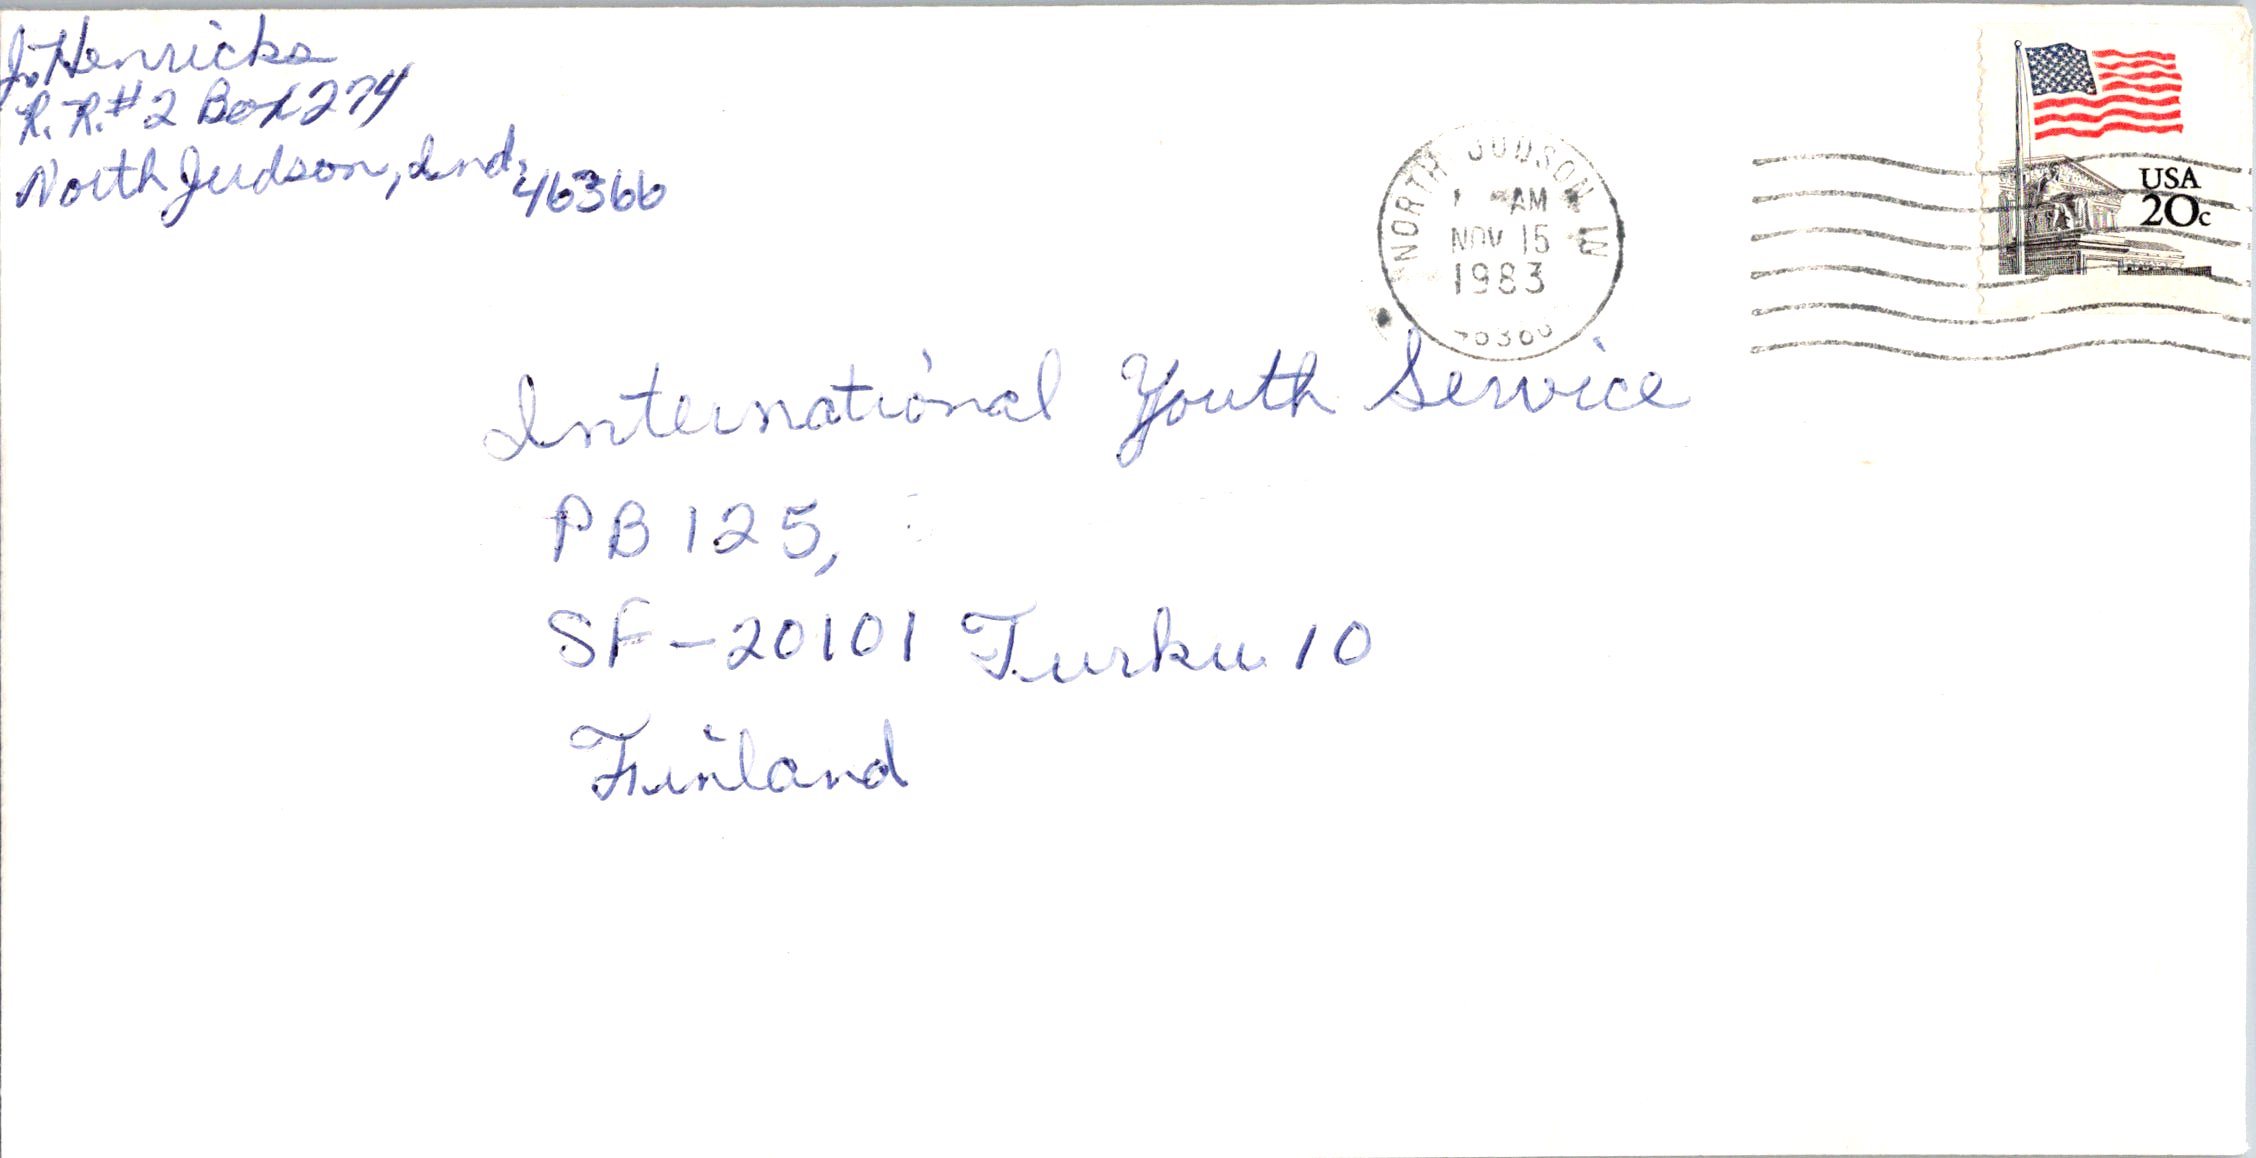 J. Henricks
R. R. #2 Box 274
North Judson, Ind. 46366
NORTH JUDSON IN
AM
NOV 15
1983
USA
20c
International Youth Service
PB 125,
SF-20101 Turku 10
Finland